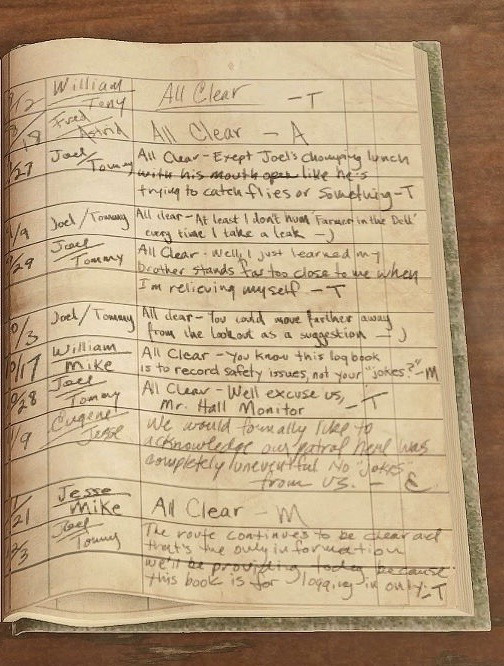 /12 William
Tony
All Clear -T
/18 Fred
Astrid
All Clear - A
/27 Joel
/Tommy
All Clear - Exept Joel's chomping lunch
with his mouth open like he's
trying to catch flies or something -T
/9 Joel/Tommy
All clear - At least I don't hum 'Farmer in the Dell'
every time I take a leak - J
/29 Joel
Tommy
All Clear - Well, I just learned my
brother stands far too close to me when
I'm relieving myself. - T
/3 Joel/Tommy
All clear - You could move farther away
from the lookout as a suggestion - J
/17 William
Mike
All Clear - You know this logbook
is to record safety issues, not your "jokes?" -M
/28 Joel
Tommy
All Clear - Well excuse us,
Mr. Hall Monitor -T
/9 Eugene
Jesse
We would formally like to
acknowledge our patrol here was
completely uneventful No "jokes"
from us. - E
/21 Jesse
Mike
All Clear - M
/3 Joel
Tommy
The route continues to be clear and
that's the only information
we'll be providing today because
this book is for logging in only -T